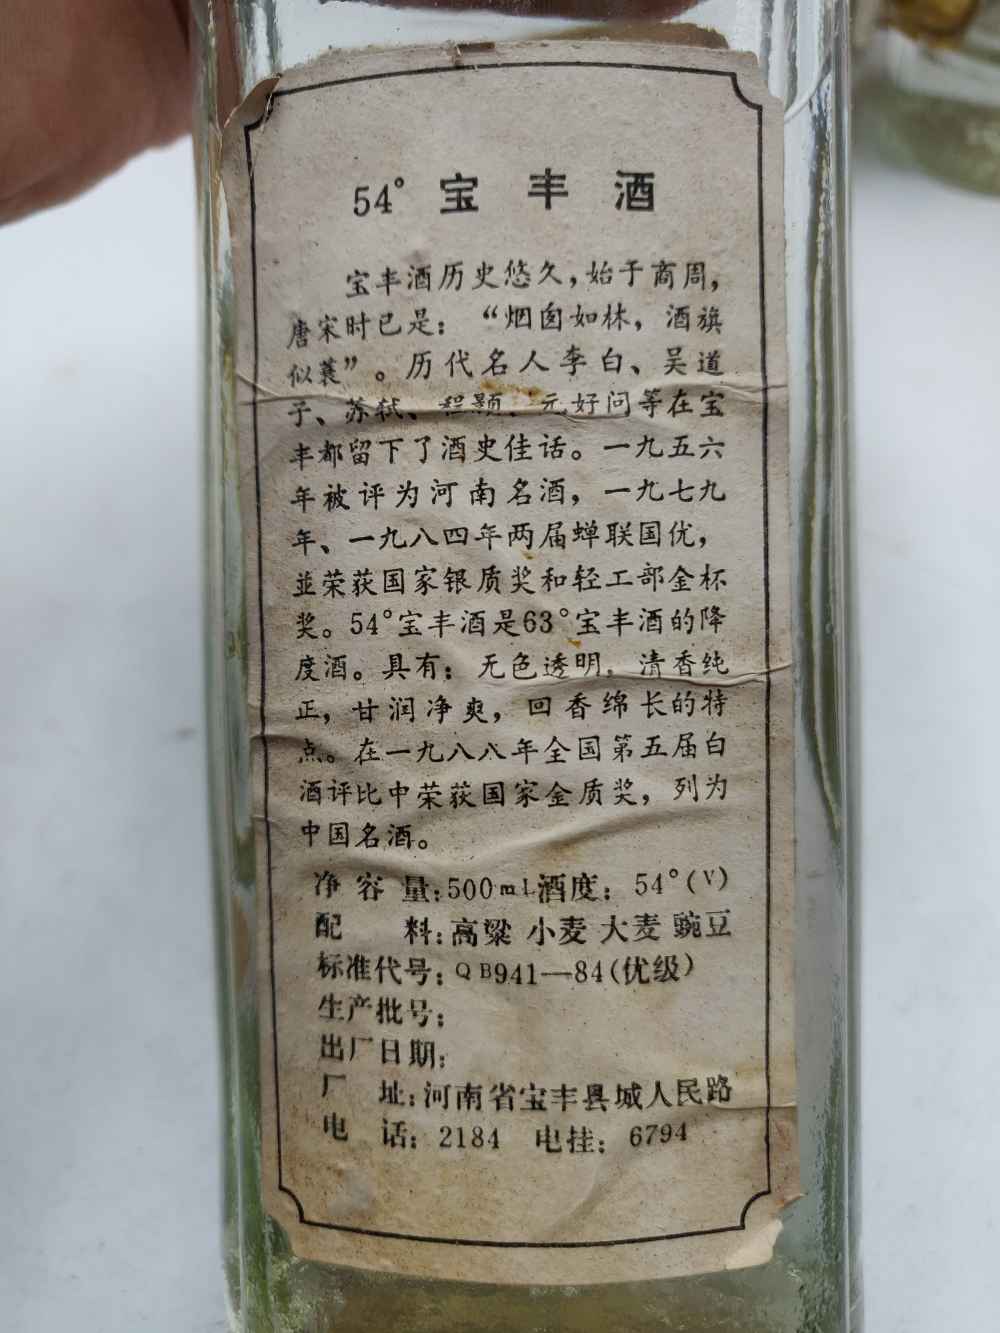 54° 宝丰酒
宝丰酒历史悠久，始于商周，
唐宋时已是：“烟囱如林，酒旗
似蓑”。历代名人李白、吴道
子、苏轼、程颢、元好问等在宝
丰都留下了酒史佳话。一九五六
年被评为河南名酒，一九七九
年、一九八四年两届蝉联国优，
並荣获国家银质奖和轻工部金杯
奖。54°宝丰酒是63°宝丰酒的降
度酒。具有：无色透明，清香纯
正，甘润净爽，回香绵长的特
点。在一九八八年全国第五届白
酒评比中荣获国家金质奖，列为
中国名酒。
净容量：500mL酒度：54°(V)
配料：高粱 小麦 大麦 豌豆
标准代号：QB941—84(优级)
生产批号：
出厂日期：
厂址：河南省宝丰县城人民路
电话：2184 电挂：6794